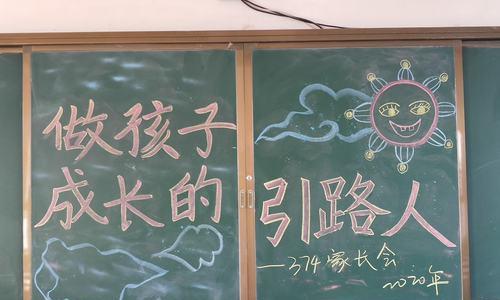 做孩子
成长的
引路人
—374家长会
2020年